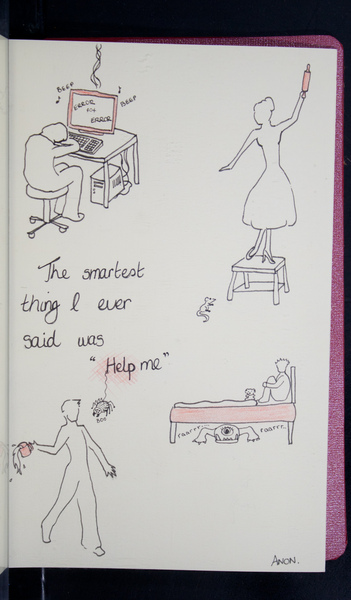 BEEP
BEEP
ERROR
404
ERROR
The smartest
thing I ever
said was
"Help me"
BOO
raarrr
raarrr.
ANON.